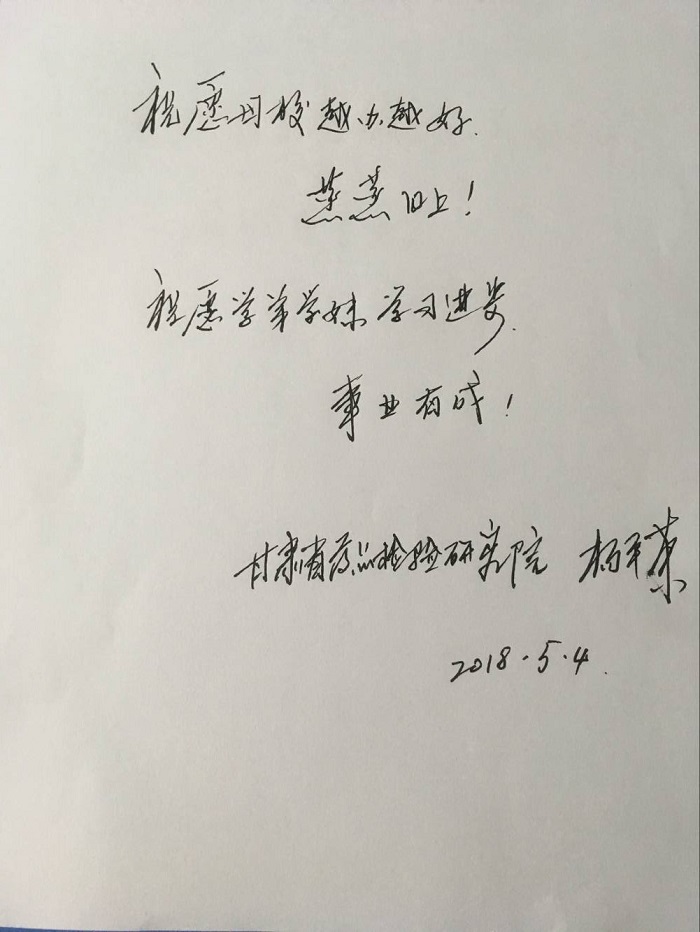 祝愿母校越办越好.
蒸蒸日上!
祝愿学弟学妹学习进步.
事业有成!
甘肃省药品检验研究院 杨平荣
2018.5.4.